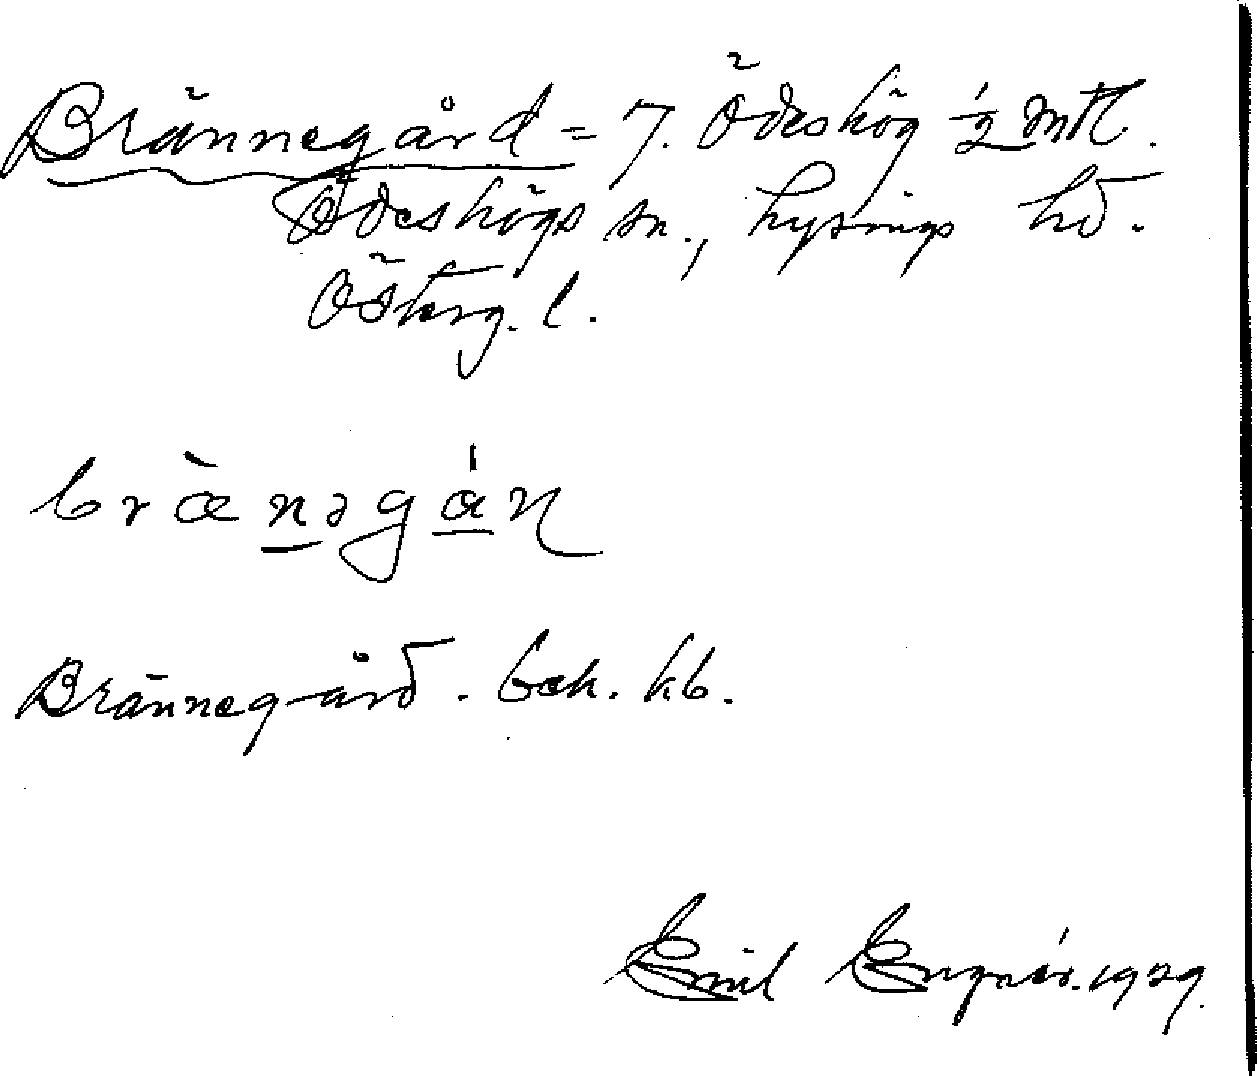 Brännegård = 7. Ödeshög 1/2 mtl.
Ödeshögs sn., Lysings hd.
Österg. l.
bræ̀nəgán
Brännegård. bek. kb.
Emil 1929.